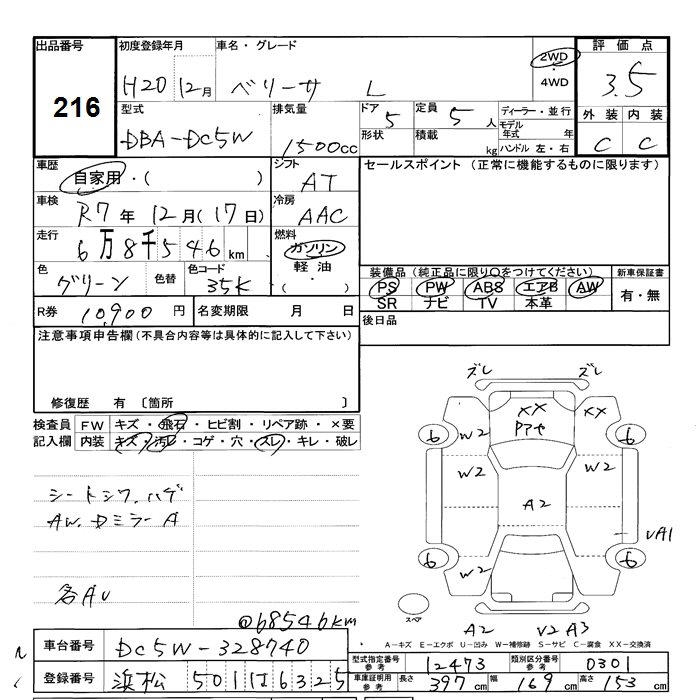 出品番号 初度登録年月 車名・グレード 2WD・4WD 評価点
216 H20 12月 ベリーサ L 3.5
型式 排気量 ドア 5 定員 5人 ディーラー・並行 外装 内装
DBA-DC5W 1500cc 形状 積載 kg モデル年式 年 ハンドル 左・右 C C
車歴 自家用・( ) シフト AT セールスポイント (正常に機能するものに限ります)
車検 R7年 12月(17日) 冷房 AAC
走行 6万8千546km 燃料 ガソリン 軽油 ・( )
色 グリーン 色替 色コード 35K
装備品(純正品に限り○をつけてください) 新車保証書
PS PW ABS エアB AW 有・無
SR ナビ TV 本革
R券 10,900円 名変期限 月 日 後日品
注意事項申告欄(不具合内容等は具体的に記入して下さい)
修復歴 有 〔箇所 〕
検査員 FW キズ・飛石・ヒビ割・リペア跡・×要
記入欄 内装 キズ・汚レ・コゲ・穴・スレ・キレ・破レ
シートシワ、ハゲ
AW、Dミラー A
各AU
@68546km
ズレ ズレ
XX XX
6 W2 アアヤ 6
W2 W2
A2
VA1
6 W2 6
スペア
A2 V2 A3
A-キズ E-エクボ U-凹み W-補修跡 S-サビ C-腐食 XX-交換済
車台番号 DC5W-328740
型式指定番号 参考 12473 類別区分番号 参考 0301
登録番号 浜松 501 は 6325
車庫証明用 参考 長さ 397cm 幅 169cm 高さ 153cm